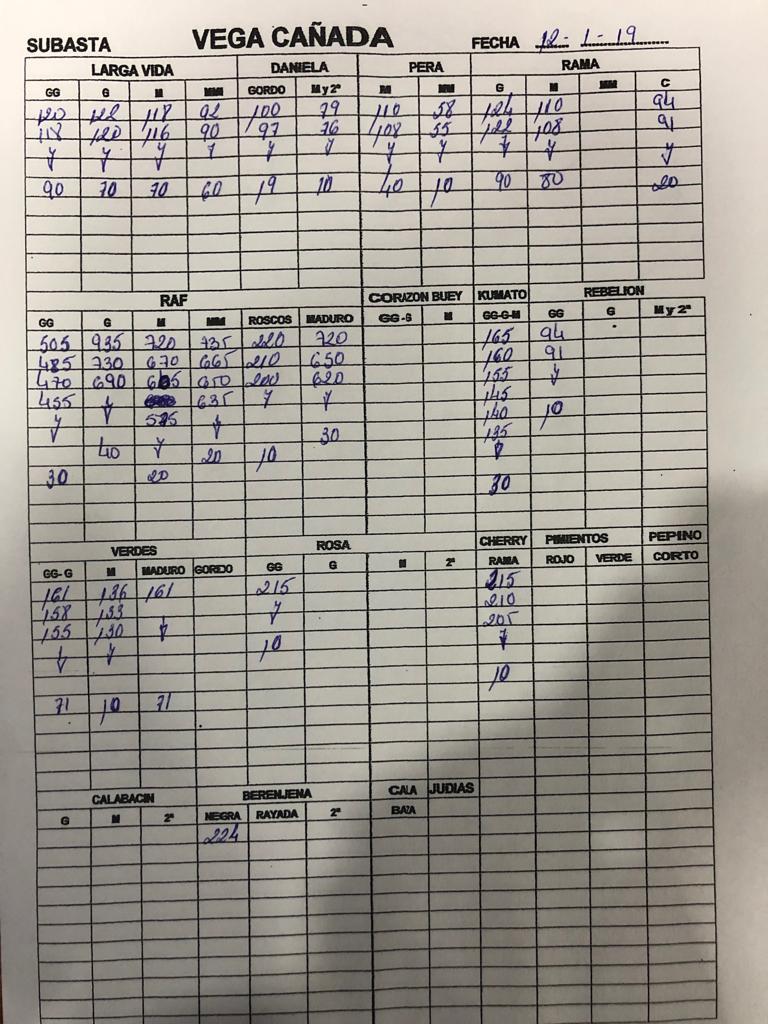 SUBASTA VEGA CAÑADA FECHA 12-1-19
LARGA VIDA DANIELA PERA RAMA
GG G M MM GORDO M y 2ª M MM G M MM C
120 122 118 92 100 79 110 58 124 110 94
118 120 116 90 97 76 108 55 122 108 91
90 70 70 60 19 10 40 10 90 80 20
RAF CORAZON BUEY KUMATO REBELION
GG G M MM ROSCOS MADURO GG-G M GG-G-M GG G M y 2ª
505 935 720 735 220 720 165 94
485 730 670 665 210 650 160 91
470 690 650 200 620 155
455 635 145
575 140 10
30 135
40 20 10
30 20 30
VERDES ROSA CHERRY PIMIENTOS PEPINO
GG-G M MADURO GORDO GG G M 2ª RAMA ROJO VERDE CORTO
161 136 161 215 215
158 133 210
155 130 10 205
10
71 10 71
CALABACIN BERENJENA CALA JUDIAS
G M 2ª NEGRA RAYADA 2ª BAZA
224